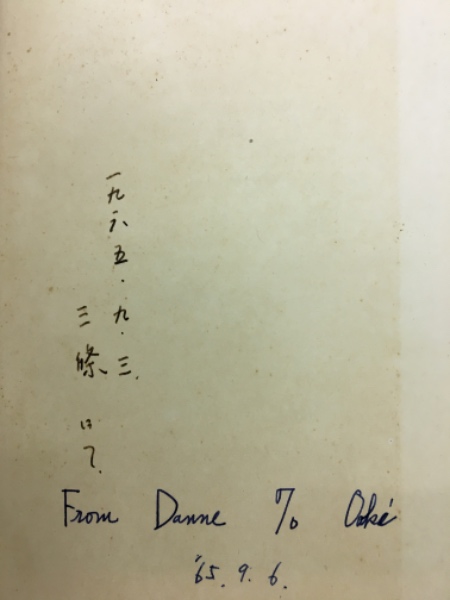 一九六五・九・三.
三條 にて.
From Danne To Oaké
'65. 9. 6.